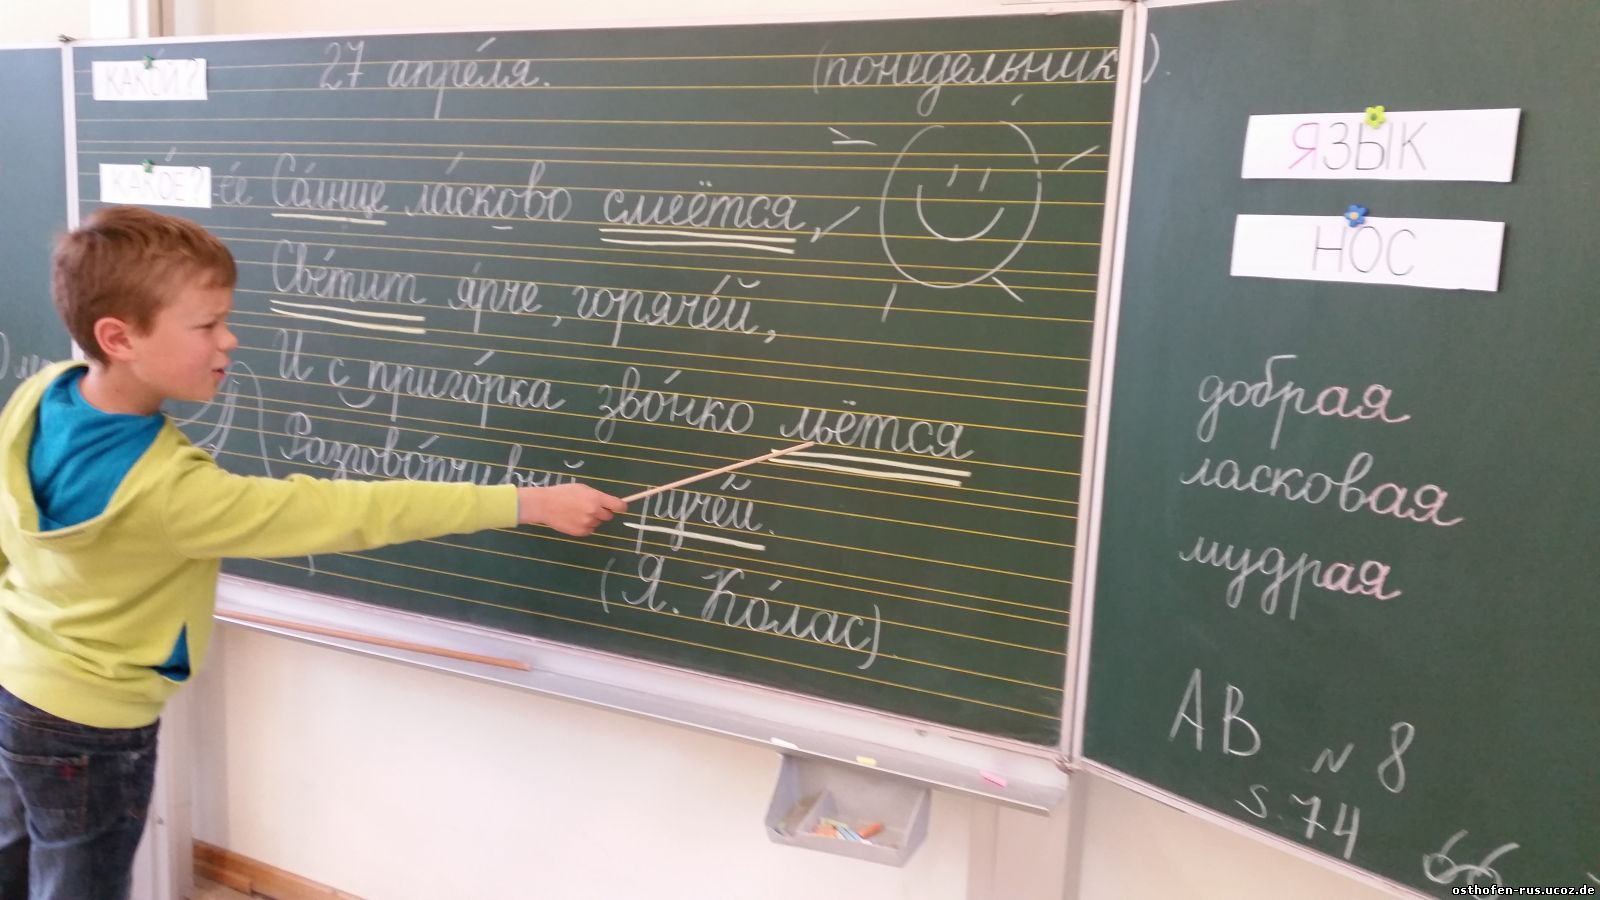 КАКОЙ?
27 апре́ля.
(понедельник).
КАКО́Е? -ее
Со́лнце ла́сково смеётся,
Све́тит я́рче, горяче́й,
И с приго́рка зво́нко льётся
Разгово́рчивый ручей.
(Я. Ко́лас)
ЯЗЫК
НОС
добрая
ласковая
мудрая
АВ N 8
S. 74
66
osthofen-rus.ucoz.de